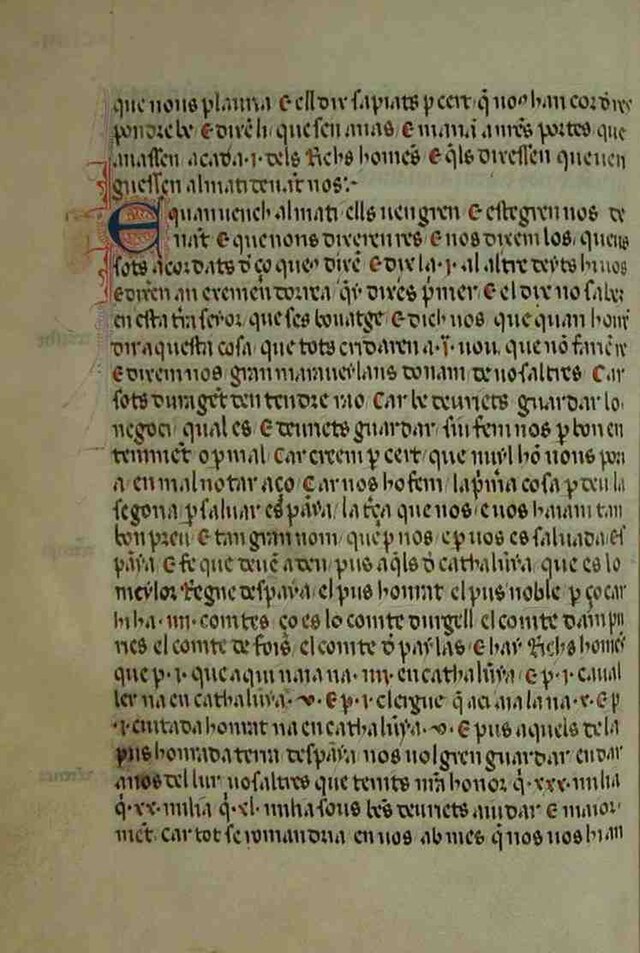 que nous plauria E ell dix sapiats p cert q̄ nos han cor dires
pondre be E dixeli que sen anas E manā a mes portes que
anassen a cada .i. dels Richs homēs E q̄ls dixessen que uen
guessen al mati deuāt nos:-
E quan uench al mati ells uengren E estegren nos de
nāt E que nons dixeren res E nos dixem los, queus
sots acordats d̄ ço que dixē E dix la .i. al altre
E dixeren an exemen dorrea q̄ dixes pmer E el dix no saber
en esta tr̄a seyor que ses bouatge E dich nos que quan hom
dix aquesta cosa que tots cridaren a .i. uou, que nō farien re
E dixem nos gran maraueylans donam de uosaltres Car
sots dur a gēt den tendre rao Car be deuriets guardar lo
negoci qual es E deuriets guardar sin fem nos p bon en
tenimēt o p mal Car creem p cert que nuyl hō nons pori
a en mal notar aço Car nos ho fem la pm̄a cosa p deu la
segona p saluar espāya, la tc̄a que nos e uos haiam tan
bon preu E tan gran nom que p nos e p uos es saluada es
pāya E fe que deuē a deu pus aq̄ls d̄ cathalūya que es lo
meylor Regne despaya el pus honrat el pus noble p ço car
hi ha .iiii. comtes ço es lo comte durgell el comte dampu
ries el comte de fois, el comte d̄ paylas E hay Richs homēs
que p .i. que aqui naia na .iiii. en cathalūya E p .i. caual
ler na en cathalūya .v. E p .i. clergue q̄ aci aia la na .x. E p
.i. ciutada honrat na en cathalūya .v. E pus aquels de la
pus honrada terra despāya nos uolgren guardar en dar
a nos del lur uosaltres que tenits nr̄a honor q̄ .xxx. milia
q̄ .xx. milia q̄ .xl. milia sous bes deuriets aiudar E maior
mēt. car tot se romandria en uos ab mes q̄ nos uos hi